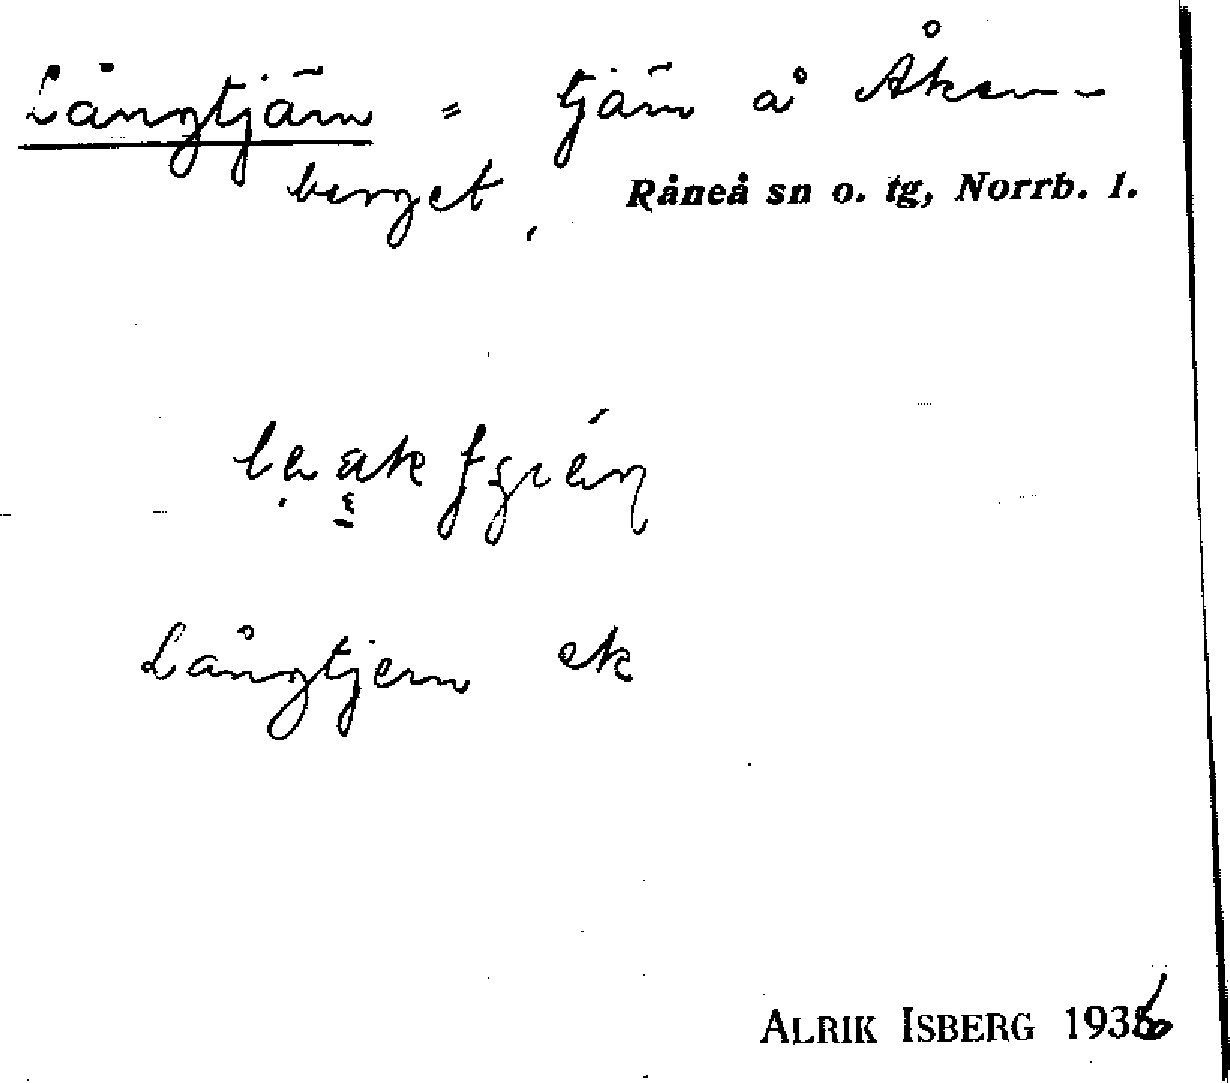 Långtjärn = tjärn å Åkern-
berget, Råneå sn o. tg, Norrb. l.
Långtjern ek
ALRIK ISBERG 1936